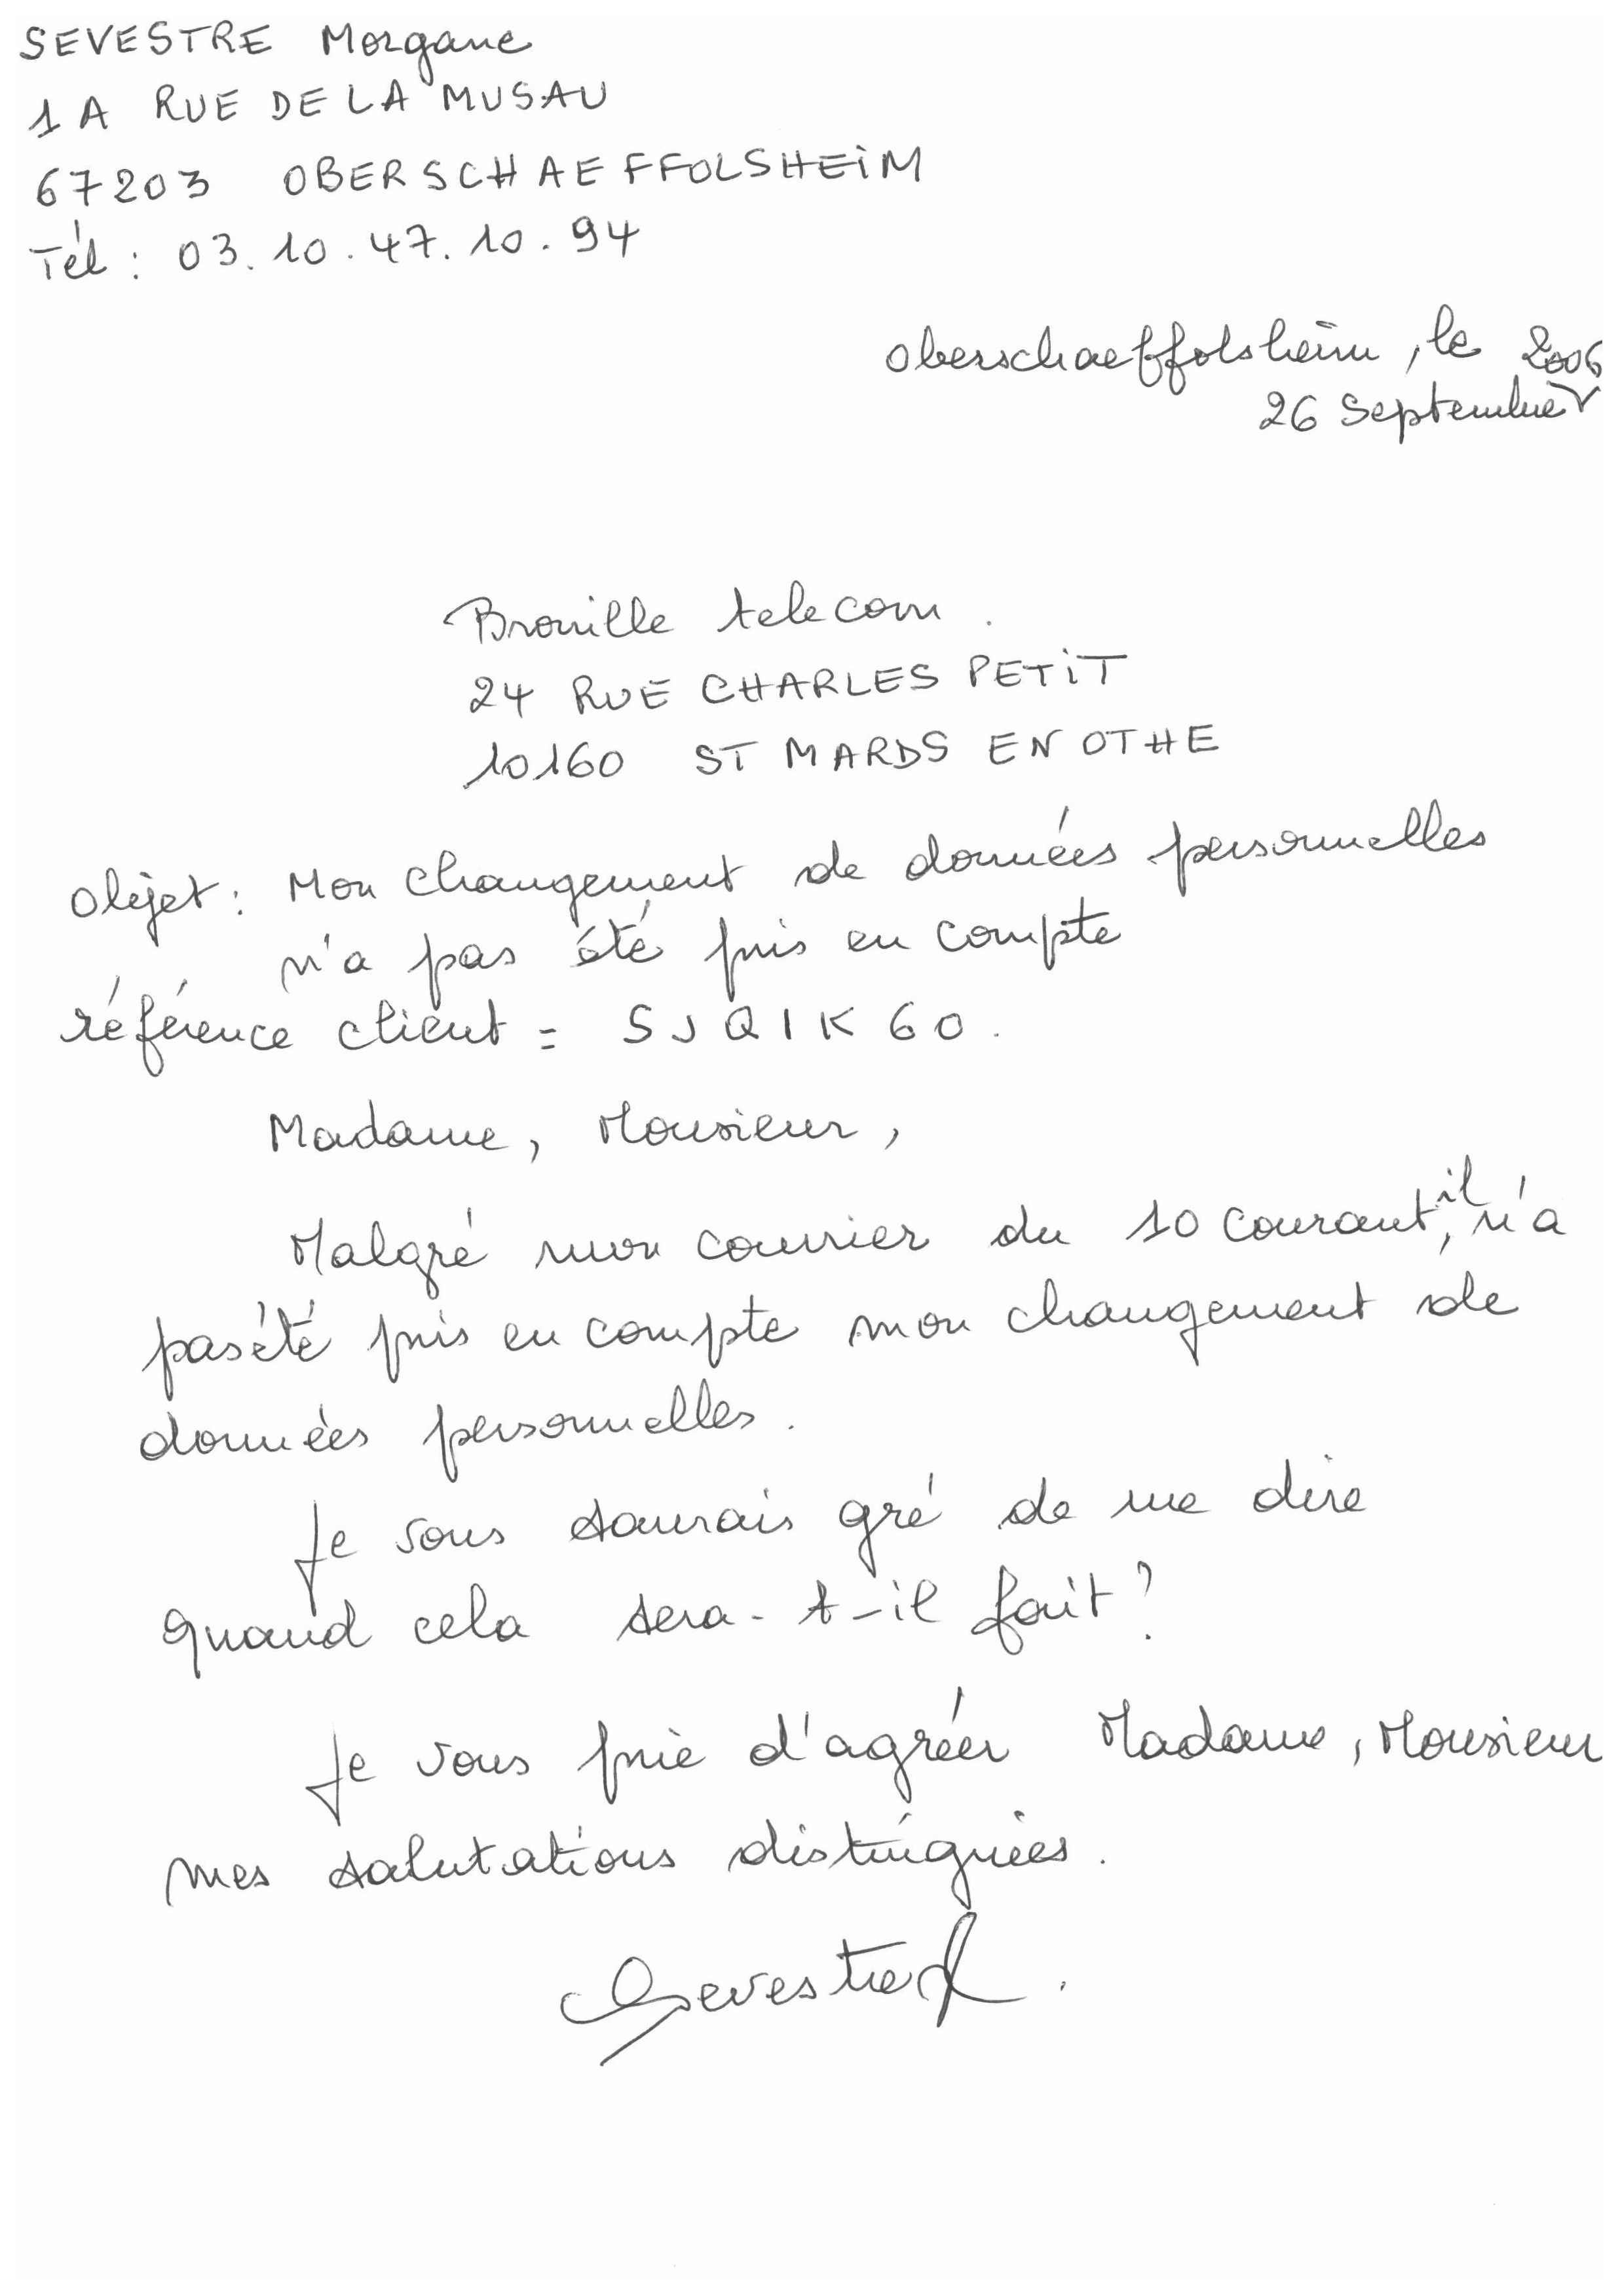 SEVESTRE Morgane
1A RUE DE LA MUSAU
67203 OBERSCHAEFFOLSHEIM
Tél : 03.10.47.10.94
Oberschaeffolsheim, le
26 Septembre 2006
Brouille telecom.
24 RUE CHARLES PETIT
10160 ST MARDS EN OTHE
Objet : Mon changement de données personnelles
n'a pas été pris en compte
référence client = SJQIK60.
Madame, Monsieur,
Malgré mon courrier du 10 courant, il n'a
pas été pris en compte mon changement de
données personnelles.
Je vous saurais gré de me dire
quand cela sera-t-il fait ?
Je vous prie d'agréer Madame, Monsieur
mes salutations distinguées.
Sevestre